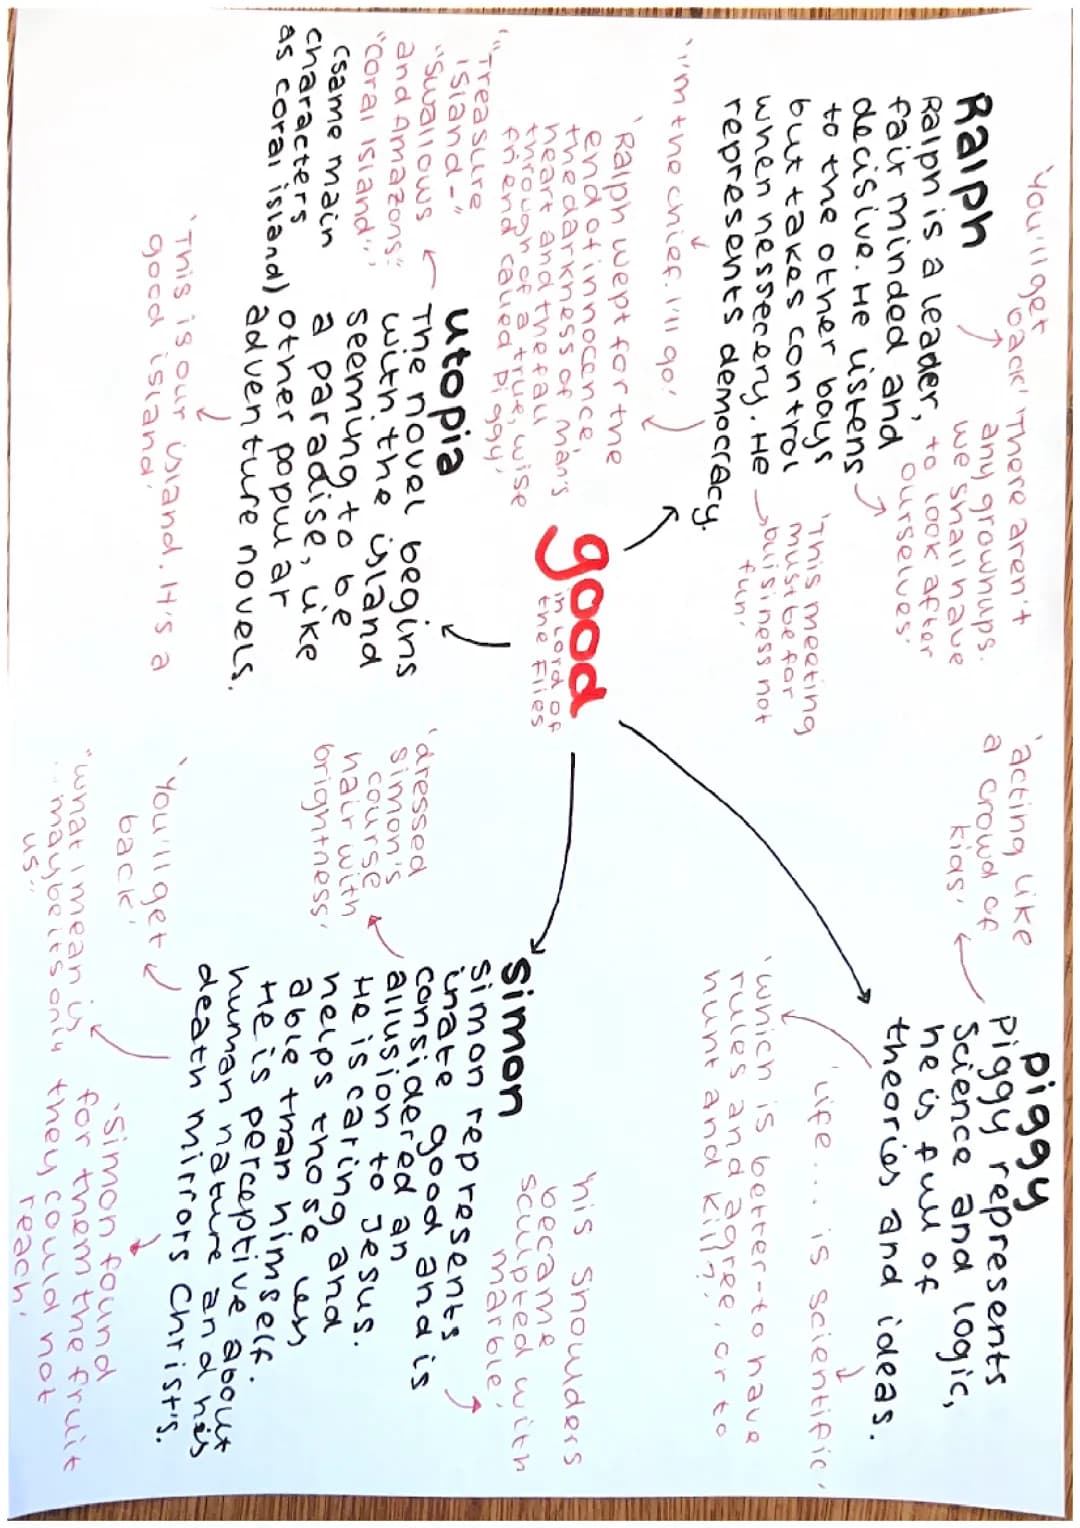 good
in Lord of
the Flies
Ralph
Ralph is a leader,
fair minded and
decisive. He listens
to the other boys
but takes control
when nessecery. He
represents democracy.
'You'll get
back'
'There aren't
any grownups.
we shall have
to look after
ourselves.'
'This meeting
must be for
buisiness not
fun.'
'I'm the chief. I'll go.'
'Ralph wept for the
end of innocence,
the darkness of man's
heart and the fall
through of a true, wise
friend called piggy.'
utopia
The novel begins
with the island
seeming to be
a paradise, like
other popular
adventure novels.
'"Treasure
island-"
"Swallows
and Amazons"
"Coral Island"'
(same main
characters
as coral island)
'This is our island. It's a
good island.'
piggy
piggy represents
Science and logic,
he is full of
theories and ideas.
'acting like
a crowd of
kids.'
'Life... is scientific.'
'which is better-to have
rules and agree, or to
hunt and kill?'
Simon
Simon represents
inate good and is
considered an
allusion to Jesus.
He is caring and
helps those less
able than himself.
He is perceptive about
human nature and his
death mirrors Christ's.
'dressed
Simon's
course
hair with
brightness.'
'his shoulders
became
sculpted with
marble.'
'You'll get
back.'
"what I mean is
...maybe its only
us"
'Simon found
for them the fruit
they could not
reach.'